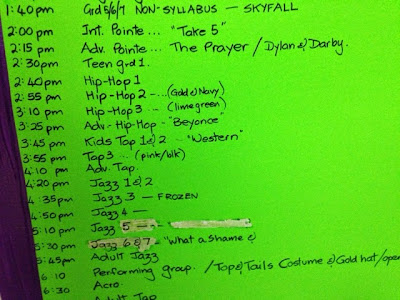 1:40 pm Grd 5/6/7 NON-SYLLABUS — SKYFALL
2:00 pm Int. Pointe ... "Take 5"
2:15 pm Adv. Pointe ... The Prayer / Dylan & Darby.
2:30pm Teen grd 1.
2:40pm Hip-Hop 1
2:55 pm Hip-Hop 2 -... (Gold & Navy)
3:10 pm Hip-Hop 3 -... (lime green)
3:25 pm Adv-Hip-Hop - "Beyonce"
3:45 pm Kids Tap 1 & 2 ... "Western"
3:55 pm Tap 3 ... (pink/blk)
4:10 pm Adv. Tap.
4:20 pm Jazz 1 & 2
4:35pm Jazz 3 — FROZEN
4:50 pm Jazz 4 —
5:10 pm Jazz 5 -
5:30 pm Jazz 6 & 7 - "What a Shame &
5:45pm Adult Jazz
6:10 Performing group. / Top & Tails Costume & Gold hat/open
6:30 Acro.
Adult Tap